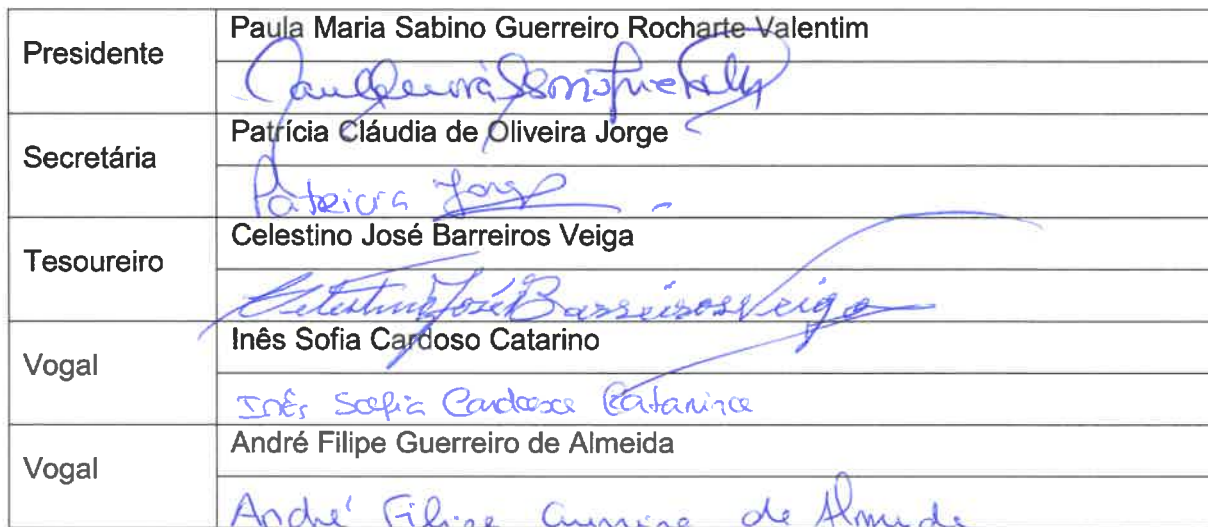 Presidente
Paula Maria Sabino Guerreiro Rocharte Valentim
Secretária
Patrícia Cláudia de Oliveira Jorge
Patricia Jorge
Tesoureiro
Celestino José Barreiros Veiga
Celestino José Barreiros Veiga
Vogal
Inês Sofia Cardoso Catarino
Inês Sofia Cardoso Catarino
Vogal
André Filipe Guerreiro de Almeida
André Filipe Guerreiro de Almeida